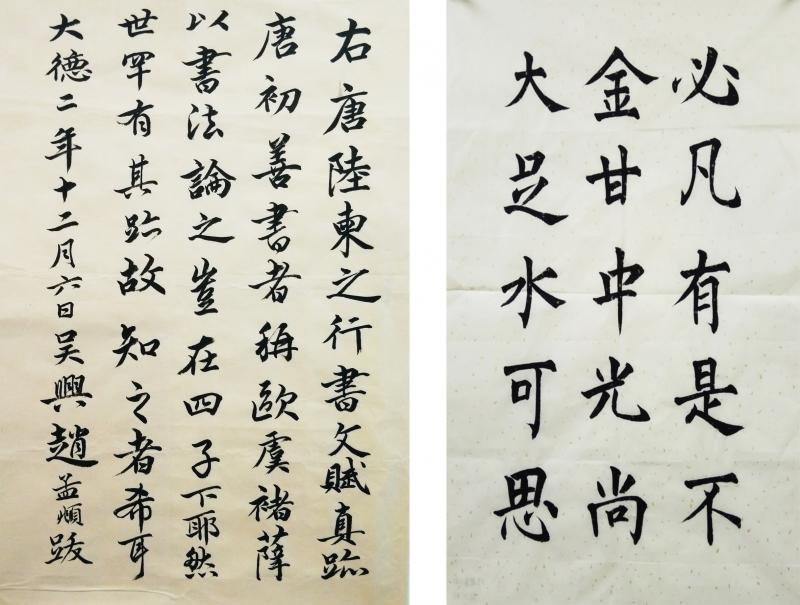 右唐陸柬之行書文賦真跡
唐初善書者稱歐虞褚薛
以書法論之豈在四子下耶然
世罕有其跡故知之者希耳
大德二年十二月六日吴興趙孟順跋
必凡有是不
金甘中光尚
大足水可思